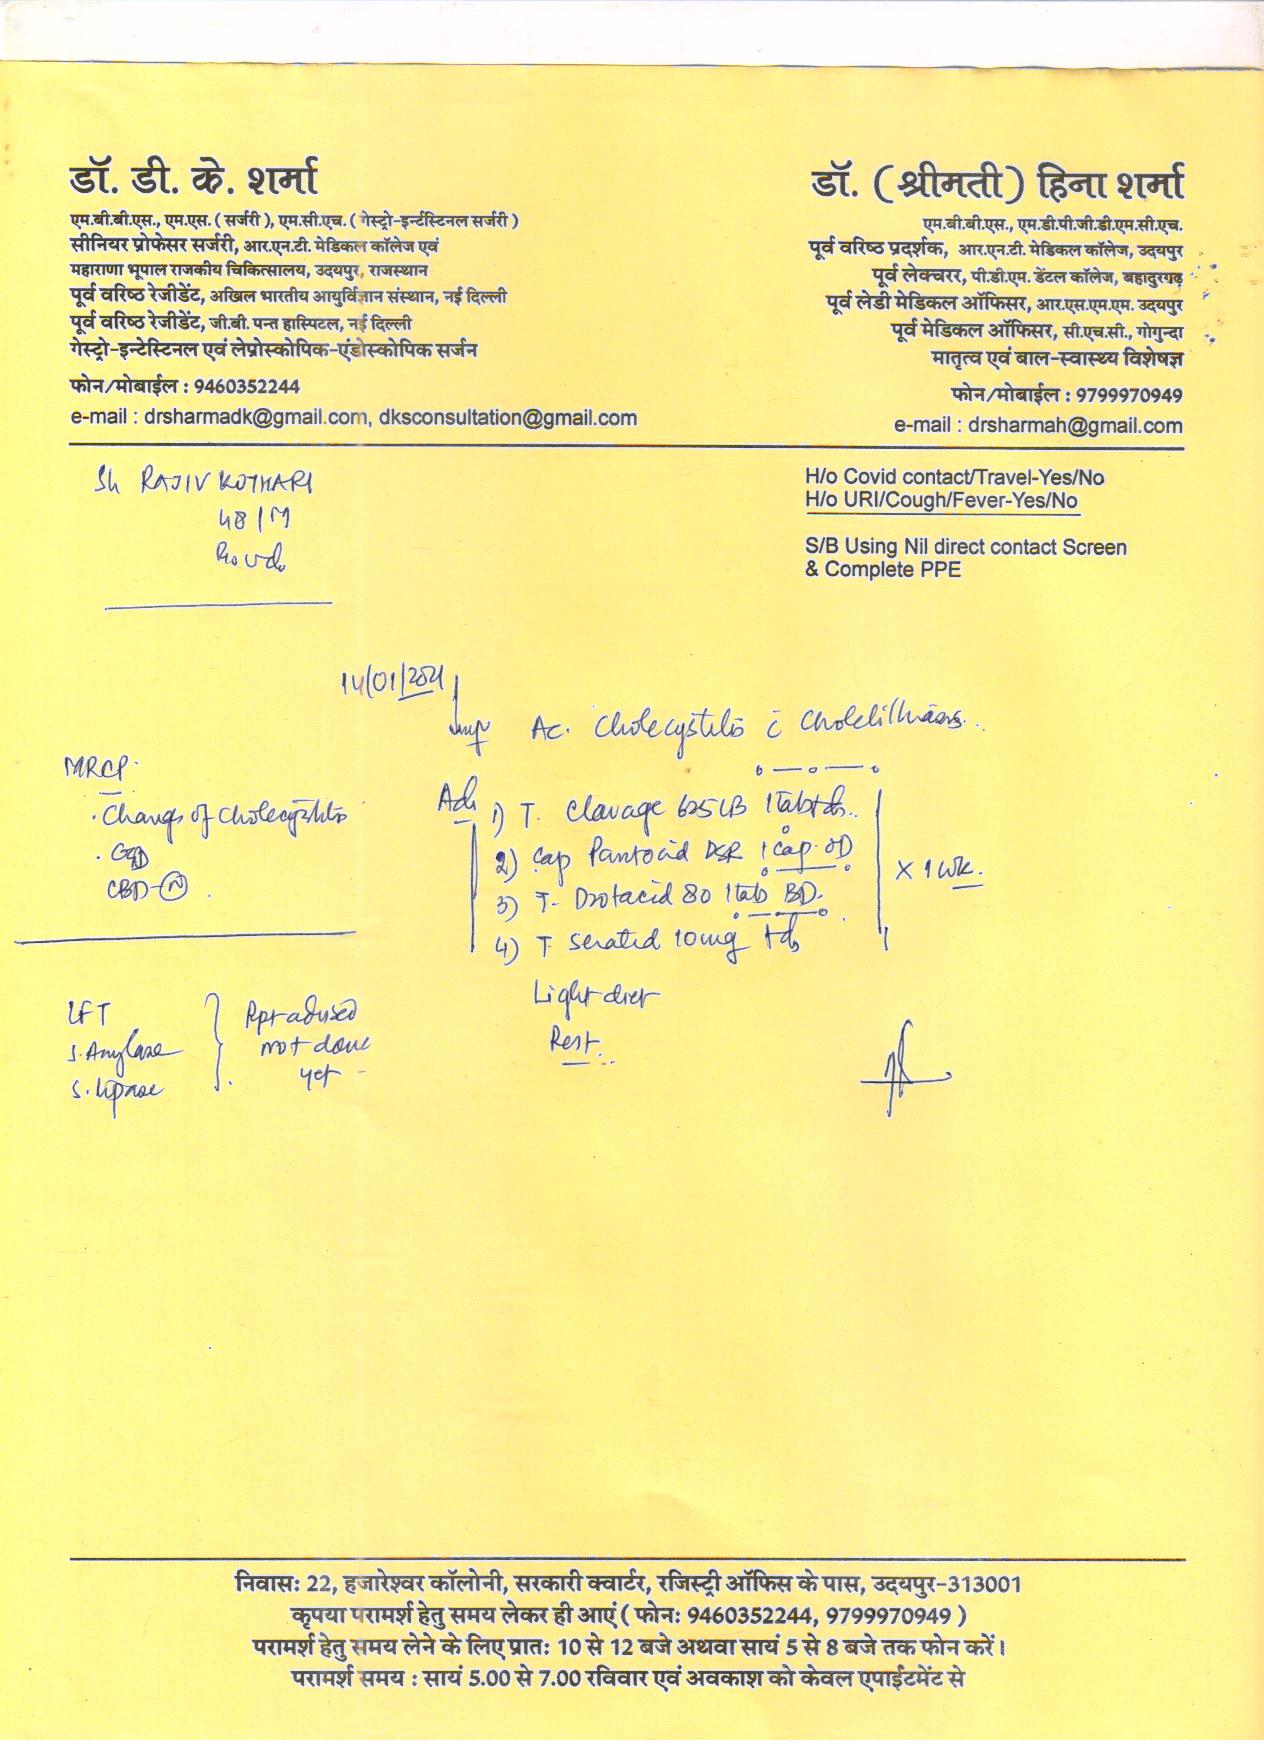 डॉ. डी. के. शर्मा
एम.बी.बी.एस., एम.एस. ( सर्जरी ), एम.सी.एच. ( गेस्ट्रो-इन्टेंस्टिनल सर्जरी )
सीनियर प्रोफेसर सर्जरी, आर.एन.टी. मेडिकल कॉलेज एवं
महाराणा भूपाल राजकीय चिकित्सालय, उदयपुर, राजस्थान
पूर्व वरिष्ठ रेजीडेंट, अखिल भारतीय आयुर्विज्ञान संस्थान, नई दिल्ली
पूर्व वरिष्ठ रेजीडेंट, जी.बी. पन्त हास्पिटल, नई दिल्ली
गेस्ट्रो-इन्टेस्टिनल एवं लेप्रोस्कोपिक-एंडोस्कोपिक सर्जन
फोन/मोबाईल : 9460352244
e-mail : drsharmadk@gmail.com, dksconsultation@gmail.com
डॉ. ( श्रीमती ) हिना शर्मा
एम.बी.बी.एस., एम.डी.पी.जी.डी.एम.सी.एच.
पूर्व वरिष्ठ प्रदर्शक, आर.एन.टी. मेडिकल कॉलेज, उदयपुर
पूर्व लेक्चरर, पी.डी.एम. डेंटल कॉलेज, बहादुरगढ़
पूर्व लेडी मेडिकल ऑफिसर, आर.एस.एम.एम. उदयपुर
पूर्व मेडिकल ऑफिसर, सी.एच.सी., गोगुन्दा
मातृत्व एवं बाल-स्वास्थ्य विशेषज्ञ
फोन/मोबाईल : 9799970949
e-mail : drsharmah@gmail.com
Sh RAJIV KOTHARI
48/M
H/o Covid contact/Travel-Yes/No
H/o URI/Cough/Fever-Yes/No
S/B Using Nil direct contact Screen
& Complete PPE
14/01/2021
Imp Ac. Cholecystitis c̄ Cholelithiasis..
MRCP.
. Changes of Cholecystitis
CBD-(N)
Adv 1) T. Clavage 625 LB 1tab tds..
2) Cap Pantocid DSR 1 cap. OD
3) T- Drotacid 80 1tab BD.
4) T 10mg tds
x 1 wk.
Light diet
Rest..
LFT
S. Amylase
S. Lipase
Rpt advised
not done
yet -
निवासः 22, हजारेश्वर कॉलोनी, सरकारी क्वार्टर, रजिस्ट्री ऑफिस के पास, उदयपुर-313001
कृपया परामर्श हेतु समय लेकर ही आएं ( फोनः 9460352244, 9799970949 )
परामर्श हेतु समय लेने के लिए प्रातः 10 से 12 बजे अथवा सायं 5 से 8 बजे तक फोन करें।
परामर्श समय : सायं 5.00 से 7.00 रविवार एवं अवकाश को केवल एपाईंटमेंट से